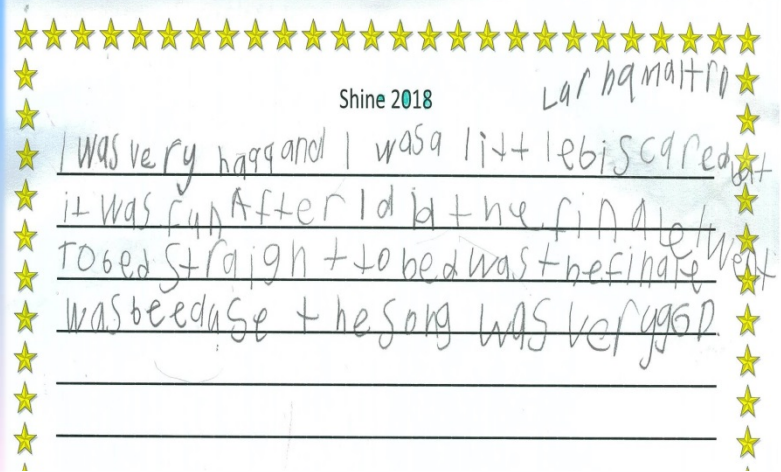 Shine 2018
I was very haqq and I was a litt le bi scared but
it was fun After I d id the finale I went
To bed straigh t to bed was the finale
was beeause the song was very gGOD